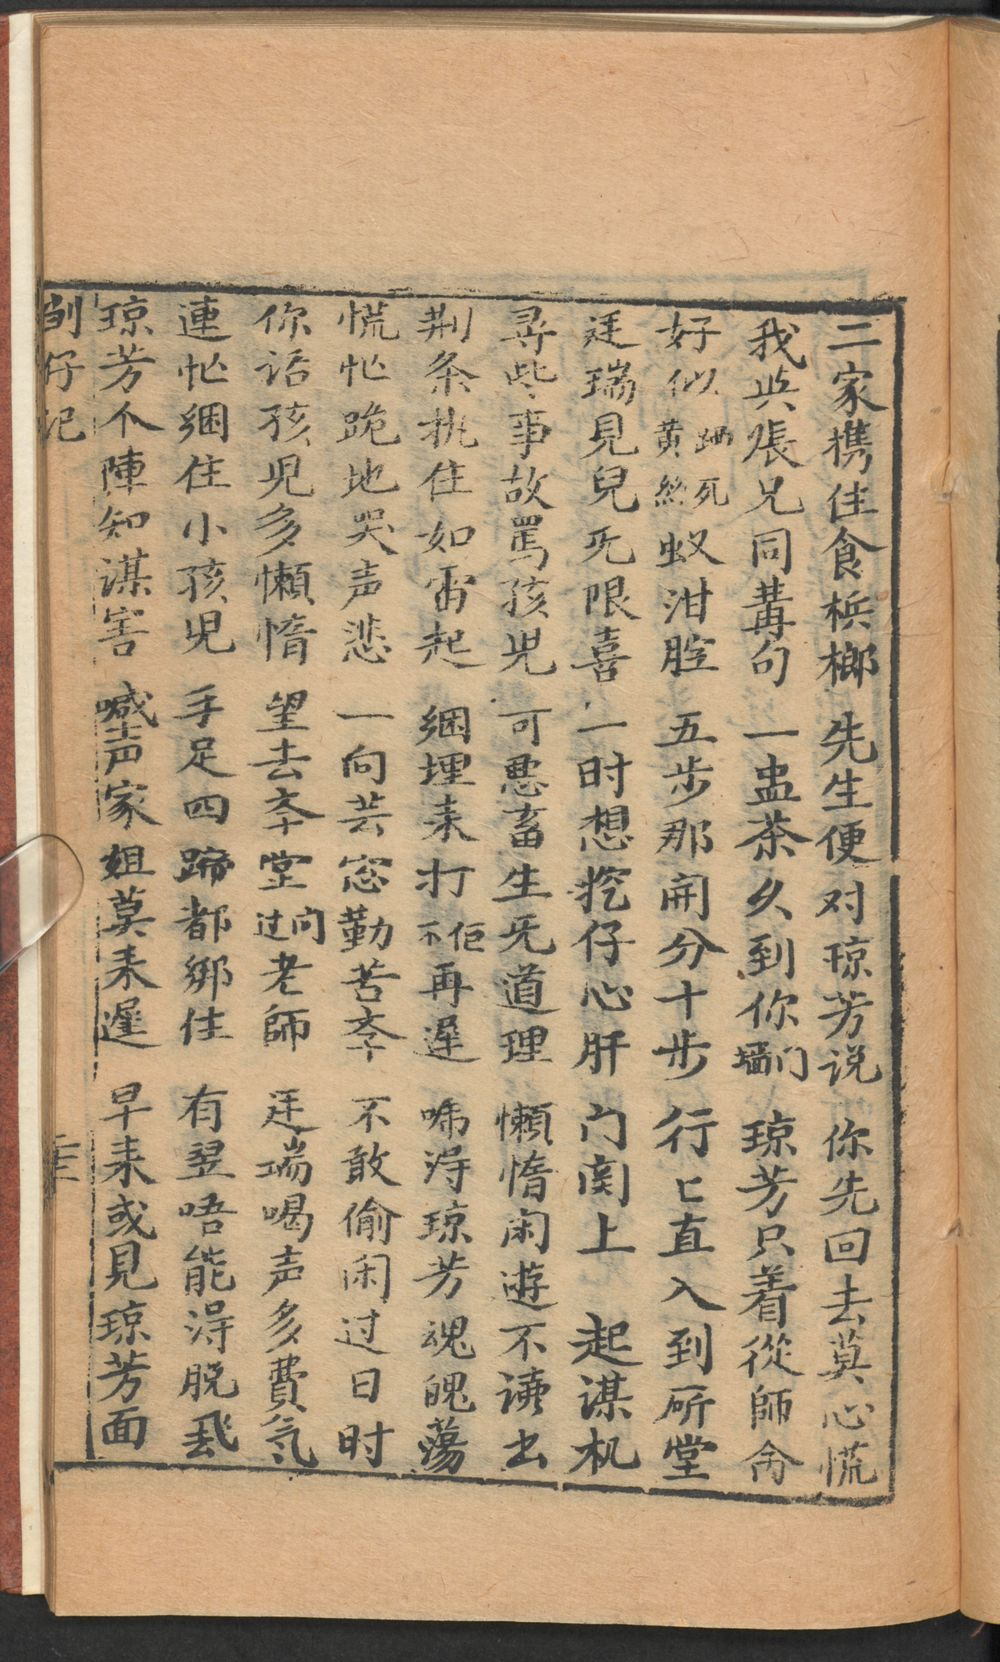 二家携住食梹榔　先生便对琼芳说　你先回去莫心慌
我共張兄同菁句　一盅茶久到你墻门　琼芳只着從師命
好似黄蜂跴死蚁泔腔　五步那開分十步　行匕直入到所堂
廷瑞見兒旡限喜　一时想挖仔心肝　门関上　起谋机
尋些事故罵孩児　可悪畜生旡道理　懶惰闲遊不讀出
荆条执住如雷起　綑埋来打不佢再遲　嚇淂琼芳魂魄蕩
慌忙跪地哭声悲　一向芸窓勤苦斈　不敢偷闲过日时
你话孩児多懶惰　望去斈堂过问老師　廷瑞喝声多費氣
連忙綑住小孩児　手足四蹄都绑住　有翌唔能淂脱飛
琼芳个陣知謀害　喊声家姐莫来遲　早来或見琼芳面
刣仔记　二十三